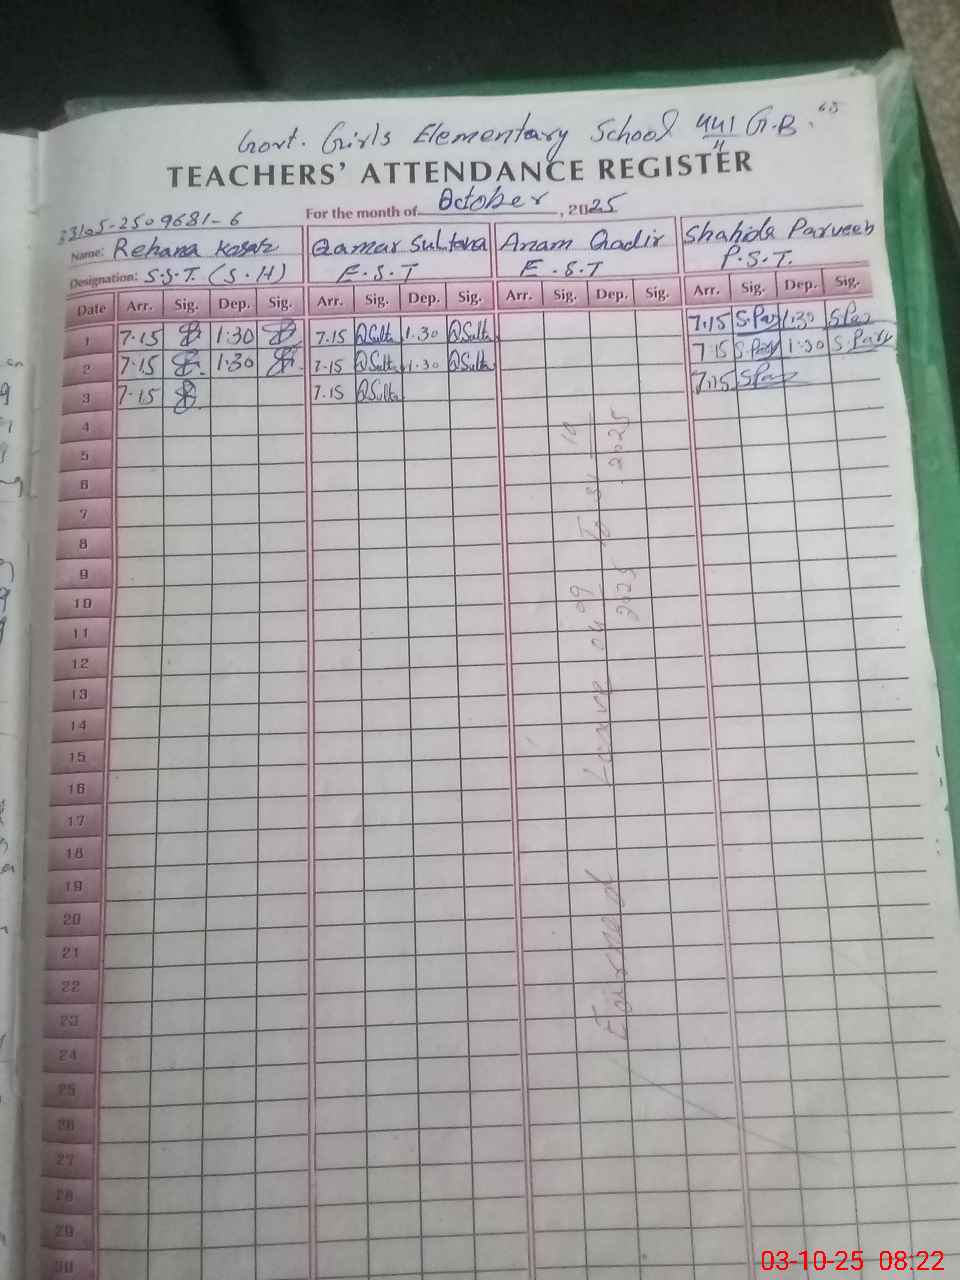 Govt. Girls Elementary School 441 G.B.
TEACHERS' ATTENDANCE REGISTER
For the month of October, 2025
33105-2509681-6
Name: Rehana Kosar Qamar Sultana Anam Qadir Shahida Parveen
Designation: S.S.T. (S.H) E.S.T E.S.T P.S.T.
Date Arr. Sig. Dep. Sig. Arr. Sig. Dep. Sig. Arr. Sig. Dep. Sig. Arr. Sig. Dep. Sig.
1 7-15 1:30 7.15 QSulta 1.30 QSulta 7.15 S.Par 1.30 S.Par
2 7-15 1:30 7.15 QSulta 1.30 QSulta 7.15 S.Parv 1.30 S.Parv
3 7-15 7.15 QSulta 7.15 S.Par
4
5
6
7
8
9
10
11
12
13
14
15
16
17
18
19
20
21
22
23
24
25
26
27
28
29
30
Earned Leave 04 09 2025 To 31 10 2025
03-10-25 08:22